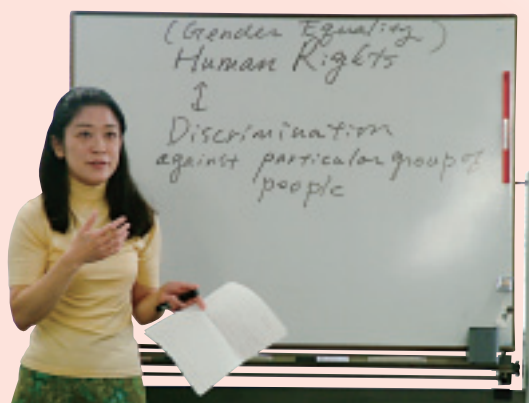 (Gender Equality)
Human Rights
↕
Discrimination
against particular group of
people